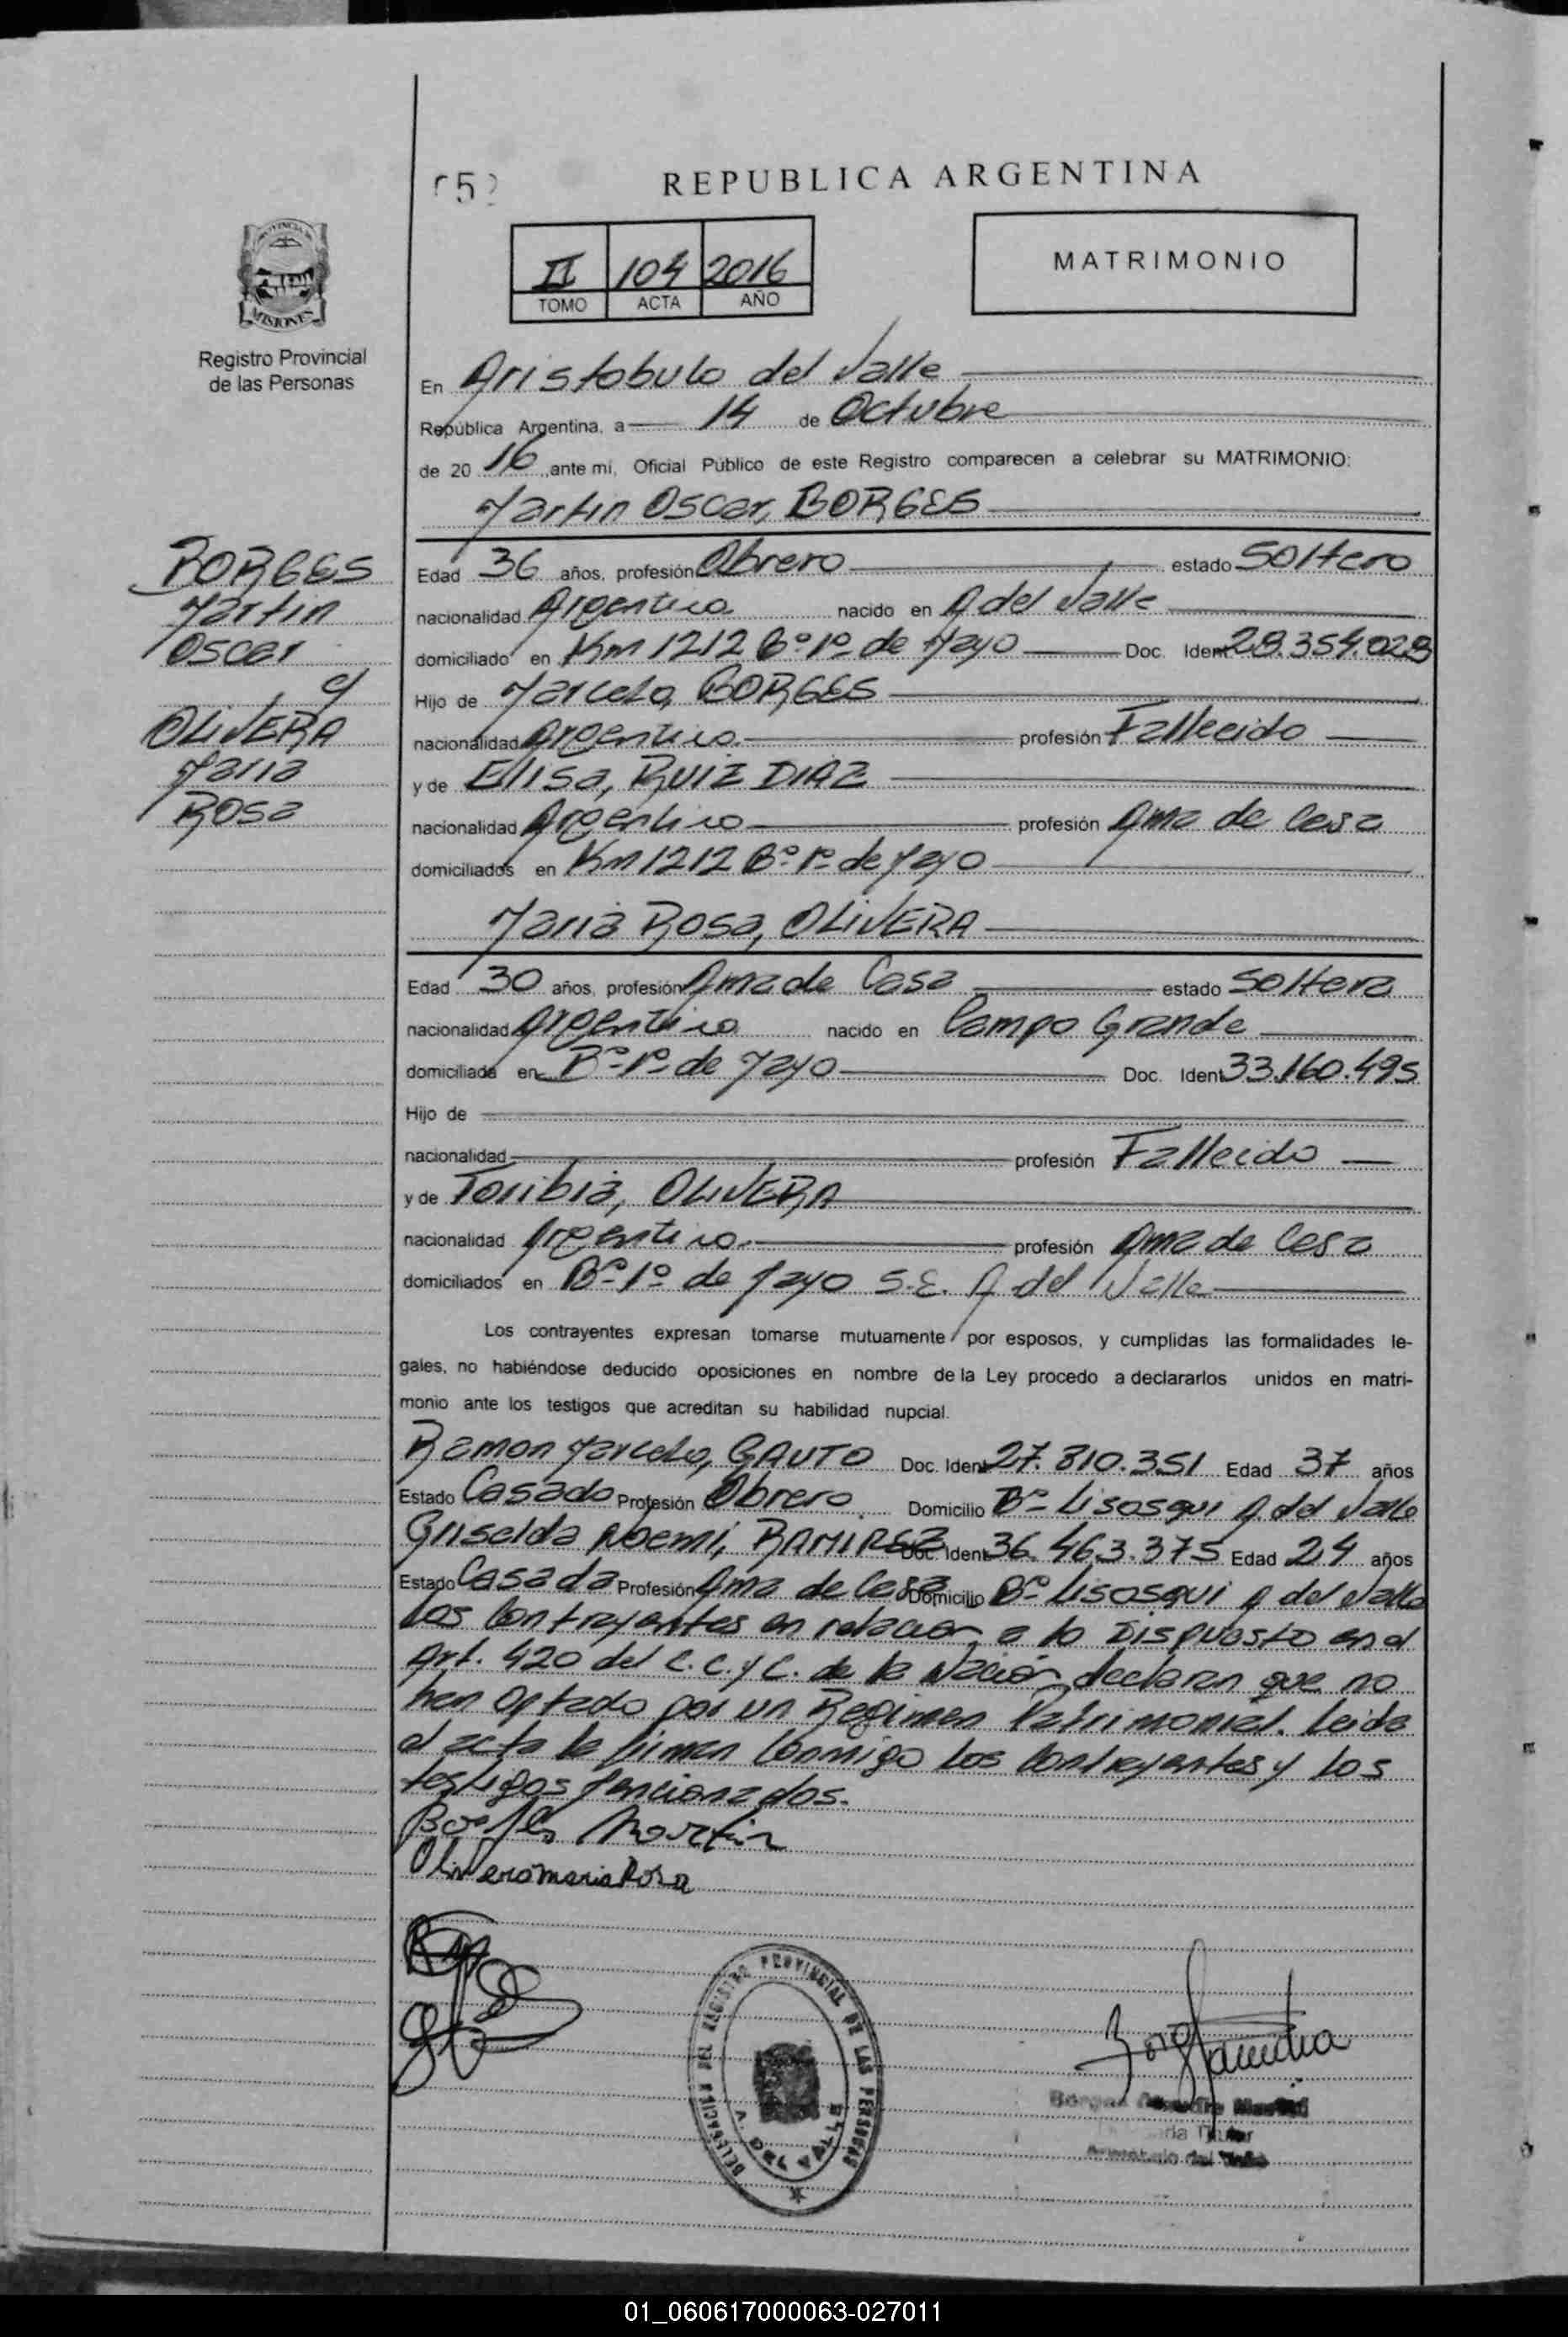 (52
REPUBLICA ARGENTINA
PROVINCIA DE
MISIONES
Registro Provincial
de las Personas
II 104 2016
TOMO ACTA AÑO
MATRIMONIO
En Aristobulo del Valle
República Argentina, a 14 de Octubre
de 20 16 ,ante mi, Oficial Público de este Registro comparecen a celebrar su MATRIMONIO:
Martin Oscar, BORGES
BORGES
Martin
Oscar
c/
OLIVERA
Maria
Rosa
Edad 36 años, profesión Obrero estado Soltero
nacionalidad Argentina nacido en A del Valle
domiciliado en Km 1212 Bº 1º de Mayo Doc. Ident 28.354.028
Hijo de Marcelo, BORGES
nacionalidad Argentina profesión Fallecido
y de Elisa, RUIZ DIAZ
nacionalidad Argentina profesión Ama de Casa
domiciliados en Km 1212 Bº 1º de Mayo
Maria Rosa, OLIVERA
Edad 30 años, profesión Ama de Casa estado Soltera
nacionalidad Argentina nacido en Campo Grande
domiciliada en Bº 1º de Mayo Doc. Ident 33.160.495
Hijo de
nacionalidad profesión Fallecido
y de Toribia, OLIVERA
nacionalidad Argentina profesión Ama de Casa
domiciliados en Bº 1º de Mayo S.E. A del Valle
Los contrayentes expresan tomarse mutuamente por esposos, y cumplidas las formalidades le-
gales, no habiéndose deducido oposiciones en nombre de la Ley procedo a declararlos unidos en matri-
monio ante los testigos que acreditan su habilidad nupcial.
Ramon Marcelo, GAUTO Doc. Ident 27.810.351 Edad 37 años
Estado Casado Profesión Obrero Domicilio Bº Lisosqui A del Valle
Griselda Noemi, RAMIREZ Doc. Ident 36.463.375 Edad 24 años
Estado Casada Profesión Ama de Casa Domicilio Bº Lisosqui A del Valle
Los Contrayentes en relacion a lo Dispuesto en el
Art. 420 del C.C.y C. de la Nación declaran que no
han Optado por un Regimen Patrimonial. Leida
el acta la firman Conmigo los Contrayentes y los
testigos Mencionados.
Borges Martin
Olivera Maria Rosa
DELEGACION DEL REGISTRO PROVINCIAL DE LAS PERSONAS
A. DEL VALLE
Titular
Aristobulo del Valle
01_060617000063-027011